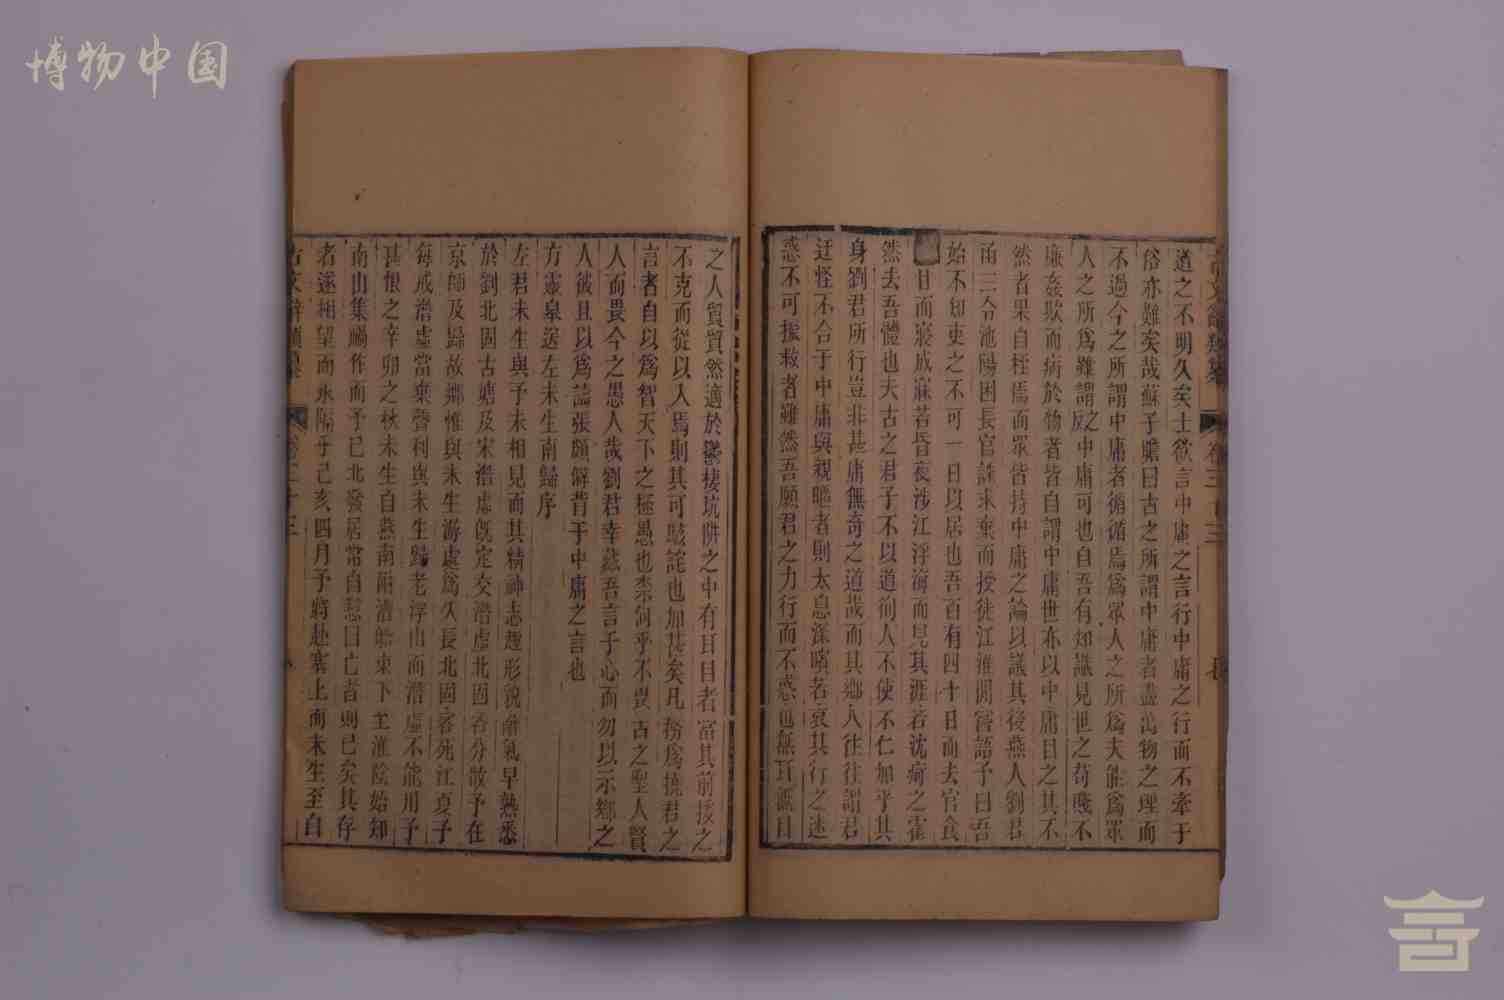 博物中国
道之不明久矣士欲言中庸之言行中庸之行而不牽于
俗亦難矣哉蘇子瞻曰古之所謂中庸者盡萬物之理而
不過今之所謂中庸者循循焉爲眾人之所爲夫能爲眾
人之所爲雖謂之中庸可也自吾有知識見世之苟賤不
廉姦欺而病於物者皆自謂中庸世亦以中庸目之其不
然者果自枉焉而眾皆持中庸之論以議其後燕人劉君
函三令池陽困長官誅求棄而授徒江淮閒嘗語予曰吾
始不知吏之不可一日以居也吾百有四十日而去官食
甘而寢成寐若昏夜涉江浮海而見其涯若沈疴之霍
然去吾體也夫古之君子不以道徇人不使不仁加乎其
身劉君所行豈非甚庸無奇之道哉而其鄉人往往謂君
迂怪不合于中庸與親暱者則太息深嚬若哀其行之迷
惑不可振救者雖然吾願君之力行而不惑也無耳無目
之人貿貿然適於鬱棲坑阱之中有耳目者當其前援之
不克而從以入焉則其可駭詫也加甚矣凡務爲撓君之
言者自以爲智天下之極愚也柰何乎不畏古之聖人賢
人而畏今之愚人哉劉君幸藏吾言于心而勿以示鄉之
人彼且以爲譸張頗僻背于中庸之言也
方靈皋送左未生南歸序
左君未生與予未相見而其精神志趣形貌辭氣早熟悉
於劉北固古塘及宋潛虛既定交潛虛北固各分散予在
京師及歸故鄉惟與未生游處爲久長北固客死江夏予
每戒潛虛當棄聲利與未生歸老浮山而潛虛不能用予
甚恨之辛卯之秋未生自燕南附漕船東下至淮陰始知
南山集禍作而予已北發居常自懟曰亡者則已矣其存
者遂相望而永隔乎己亥四月予將赴塞上而未生至自
古文辭類纂
卷三十三